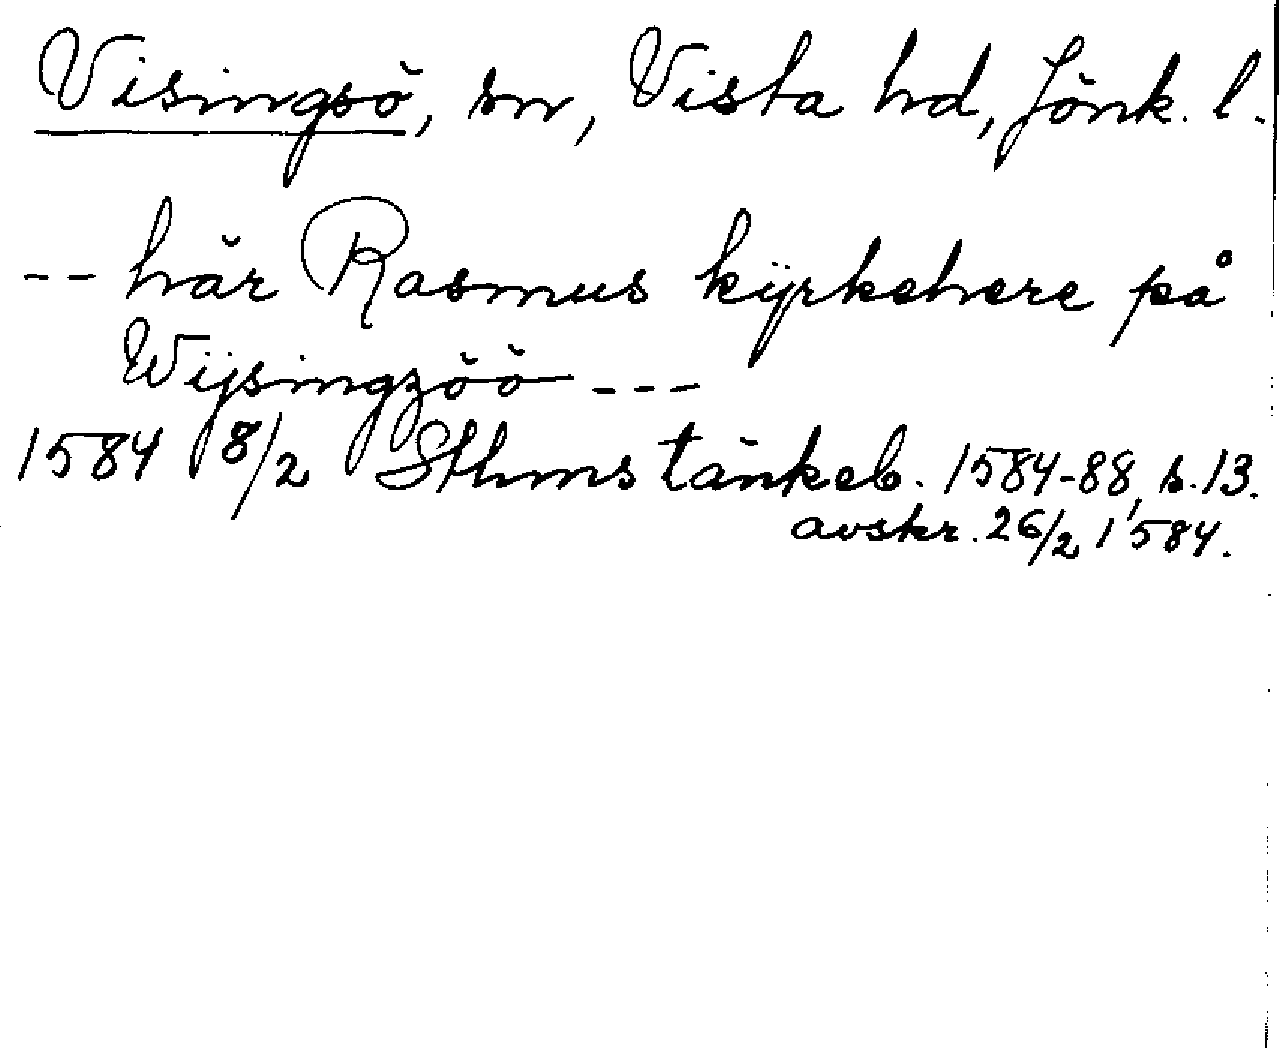 Visingsö, sn, Vista hd, Jönk. l.
-- här Rasmus kÿrkehere på
Wijsingzöö ---
1584 8/2 Sthms tänkeb. 1584-88, s. 13.
avskr. 26/2 1584.